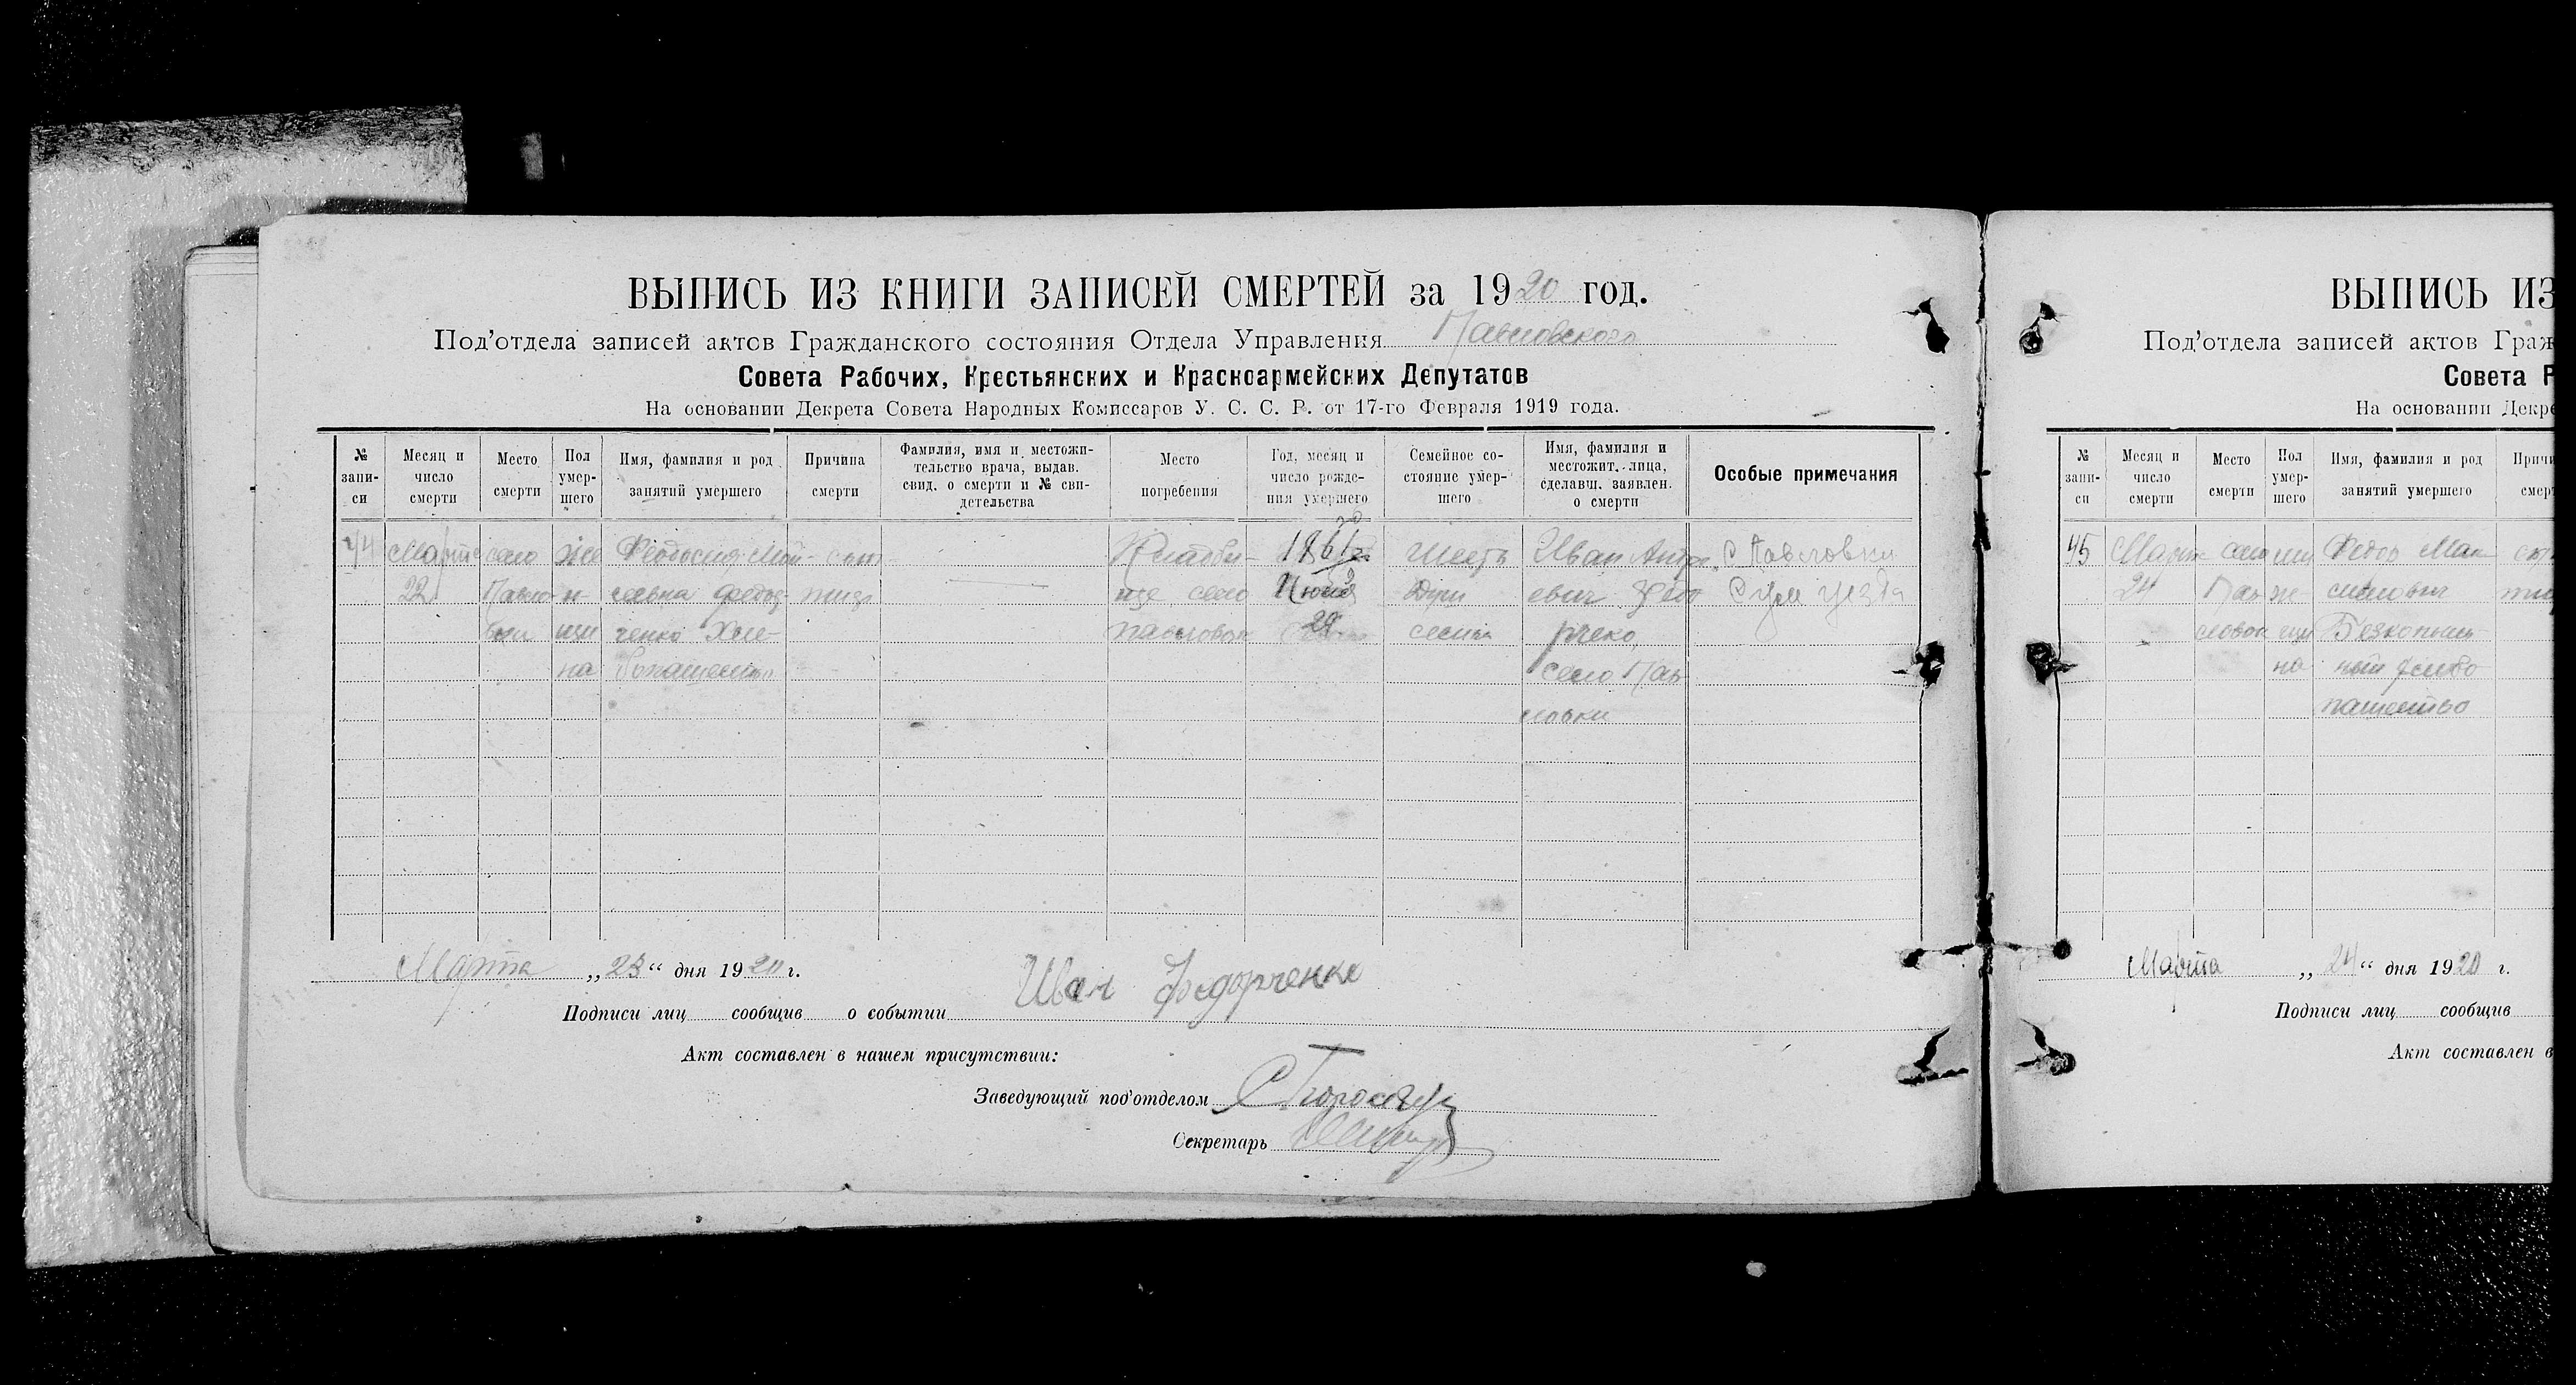 ВЫПИСЬ ИЗ КНИГИ ЗАПИСЕЙ СМЕРТЕЙ за 1920 год.
Под’отдела записей актов Гражданского состояния Отдела Управления Павловского
Совета Рабочих, Крестьянских и Красноармейских Депутатов
На основании Декрета Совета Народных Комиссаров У. С. С. Р. от 17-го Февраля 1919 года.
№ запи-си
Месяц и число смерти
Место смерти
Пол умер-шего
Имя, фамилия и род занятий умершего
Причина смерти
Фамилия, имя и местожи-тельство врача, выдав. свид. о смерти и № сви-детельства
Место погребения
Год, месяц и число рожде-ния умершего
Семейное со-стояние умер-шего
Имя, фамилия и местожит. лица, сделавш. заявлен. о смерти
Особые примечания
44 Марта село же Феодосия Мой- сып- Кладби- 1861 шесть Иван Андре С Павловки
22 Павло- н- сеевна Федор- тиф ще село Июня Душ евич Фед Сум уезда
вки щи ченко Хле- павловки 29 семьи рченко,
на бопашество село Пав
ловки
Марта „23“ дня 1920 г.
Подписи лиц сообщив о событии Иван Федорченко
Акт составлен в нашем присутствии:
Заведующий под’отделом
Секретарь
ВЫПИСЬ ИЗ
Под’отдела записей актов Граж
Совета Р
На основании Декре
№ запи-си
Месяц и число смерти
Место смерти
Пол умер-шего
Имя, фамилия и род занятий умершего
Причи смерт
45 Марта село Федор Мак
24 Пав симович
ловки
на
пашество
Марта „24“ дня 1920 г.
Подписи лиц сообщив
Акт составлен в